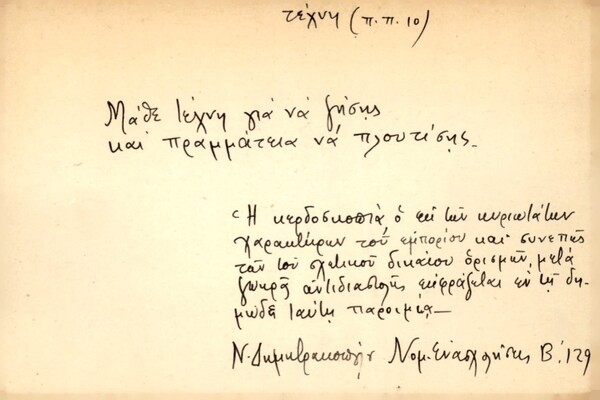 τέχνη (π.π. 10)
Μάθε τέχνη γιά νά ζήσης
και πραμμάτεια νά πλουτίσης.
Η κερδοσκοπία ὁ ἐκ τῶν κυριωτάτων
χαρακτήρων τοῦ ἐμπορίου καὶ συνεπῶς
τῶν τοῦ σχετικοῦ δικαίου ὁρισμῶν, μετά
ζωηρᾶς ἀντιδιαστολῆς ἐκφράζεται ἐν τῇ δη-
μώδει ταύτῃ παροιμίᾳ.—
Ν. Δημητρακοπούλου Νομ. Ἐνασχολήσεις Β΄. 129